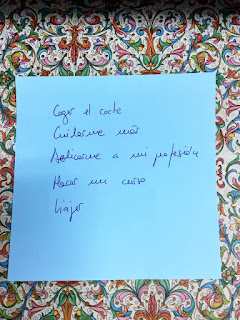 Coger el coche
Cuidarme más
Dedicarme a mi profesión
Hacer un curso
Viajar